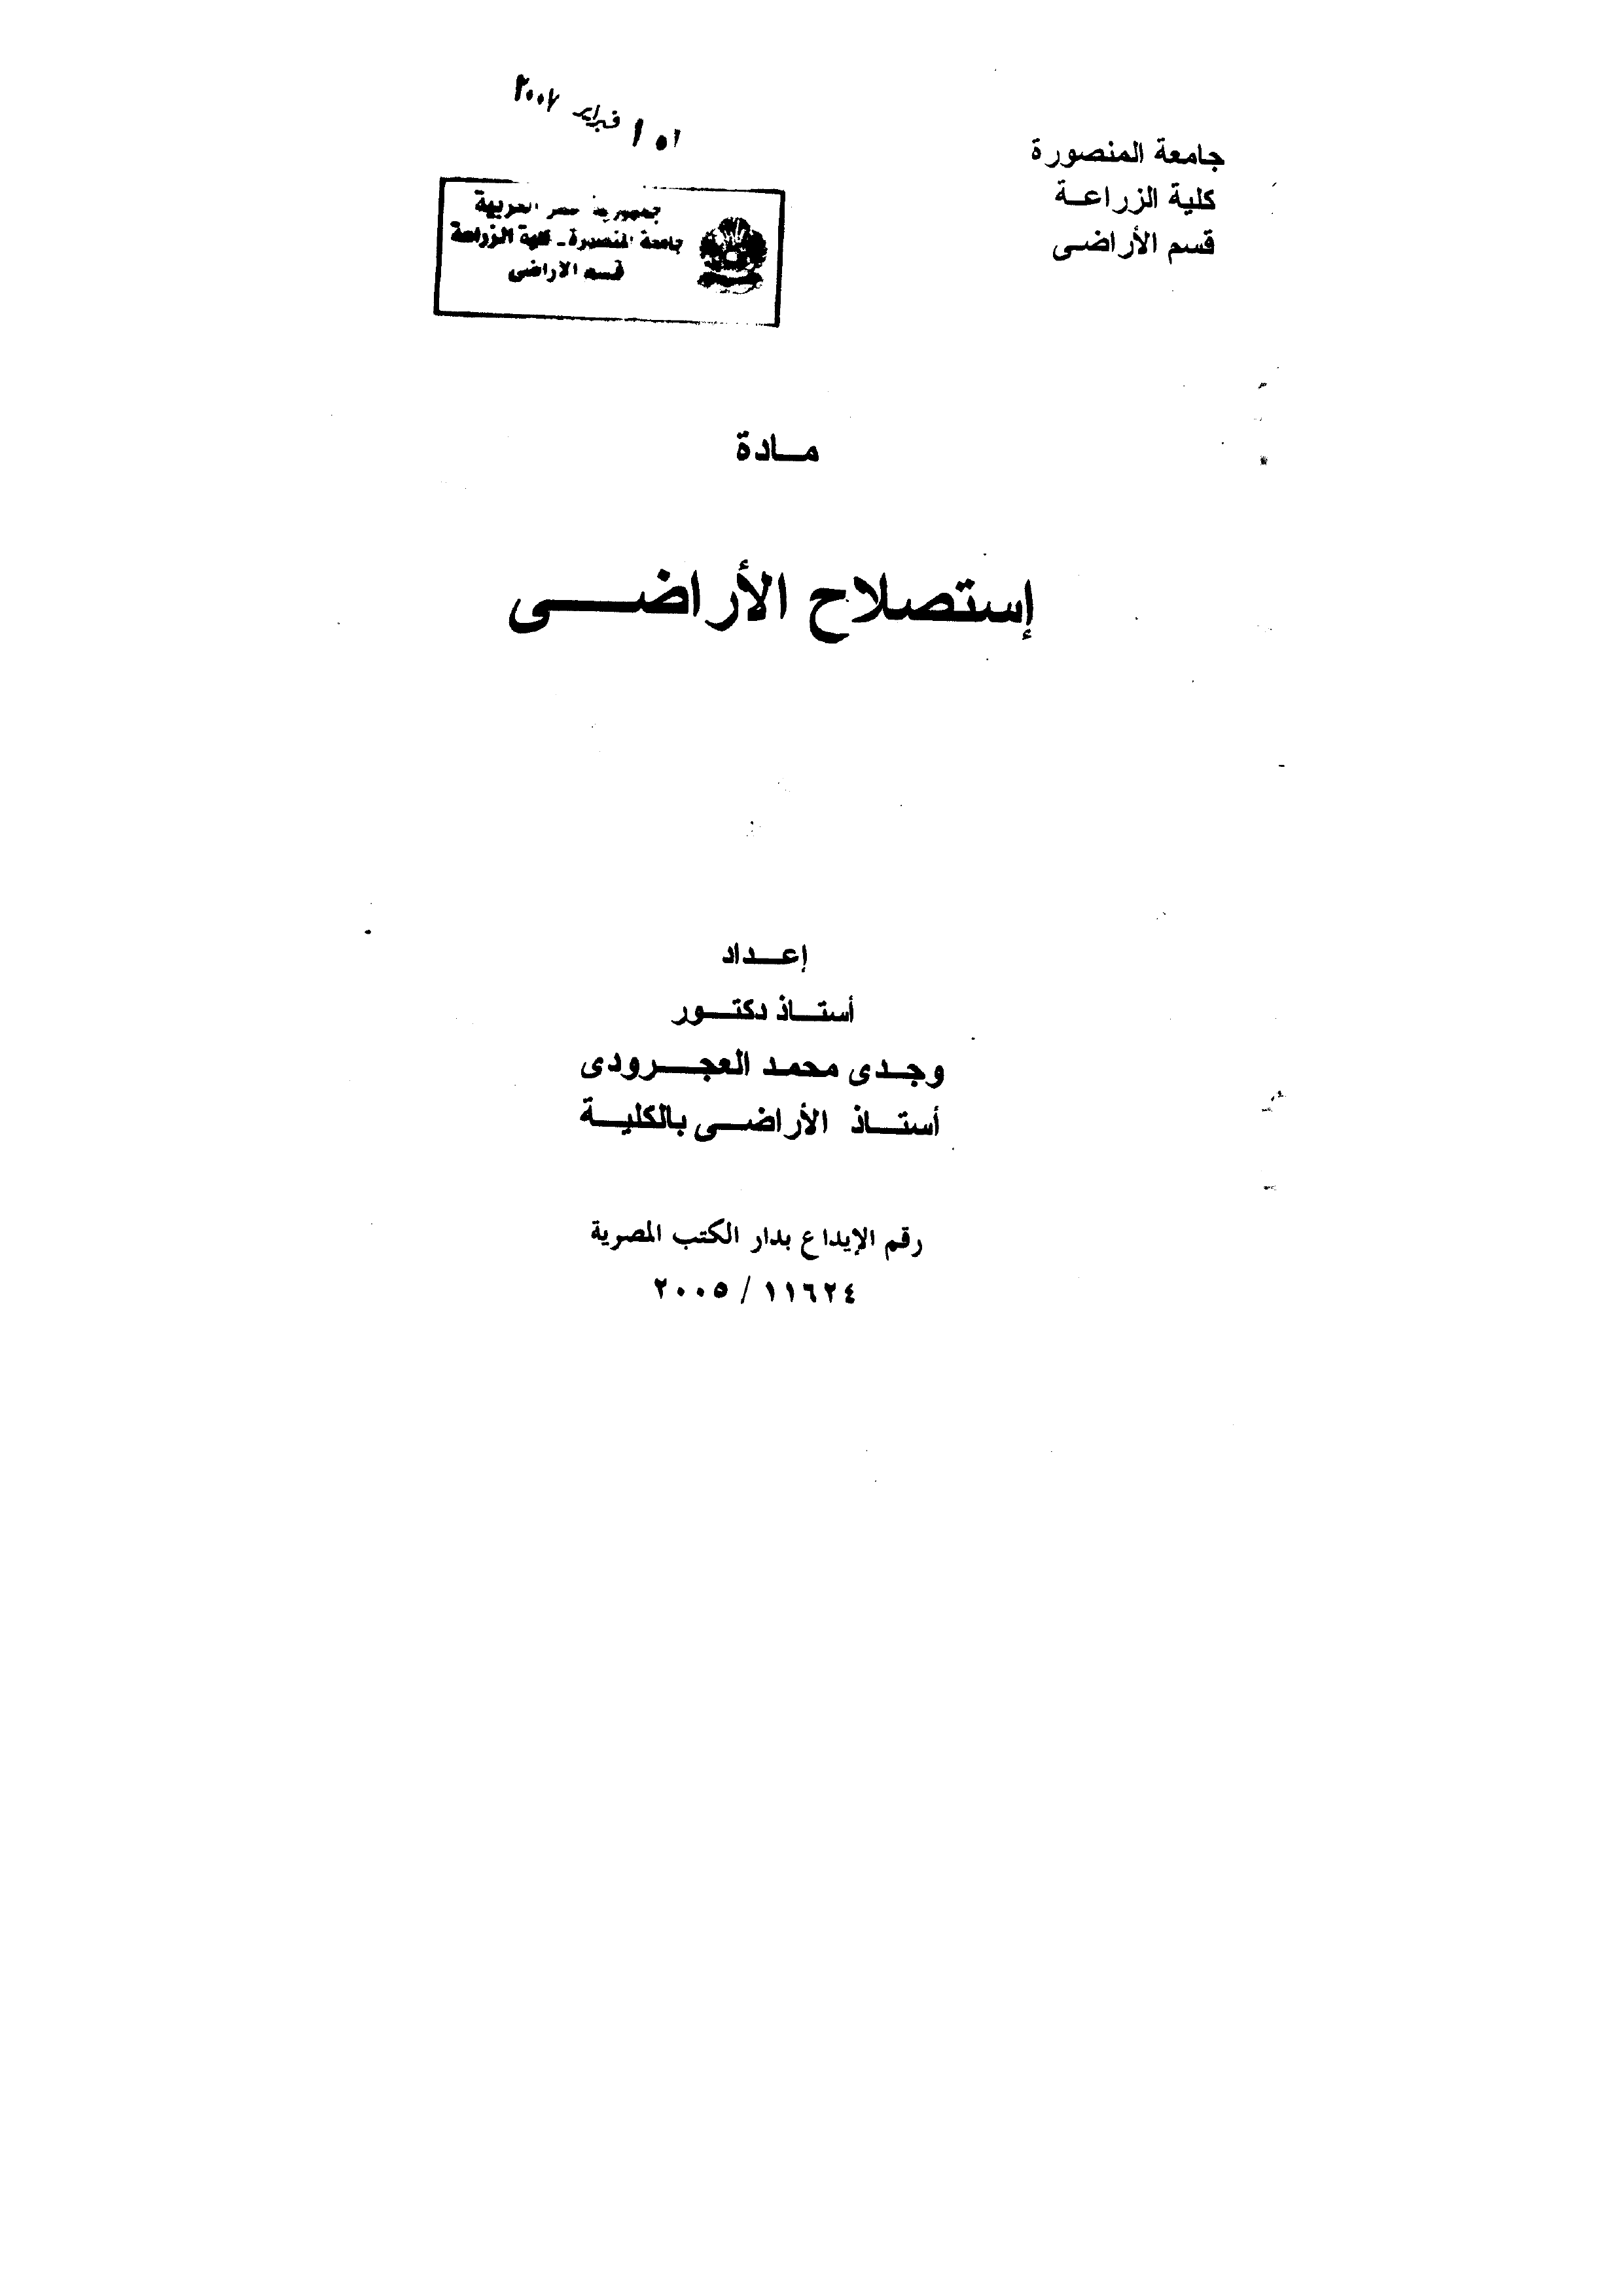 جامعة المنصورة
كلية الزراعـة
قسم الأراضـى
فبراير ٢٠٠٧
جمهورية مصر العربية
جامعة المنصورة ـ كلية الزراعة
قسم الاراضى
مــادة
إستصلاح الأراضـــى
إعــداد
أستــاذ دكتــور
وجـدى محمـد العجــرودى
أستــاذ الأراضــى بالكليــة
رقم الإيداع بدار الكتب المصرية
١١٦٢٤ / ٢٠٠٥